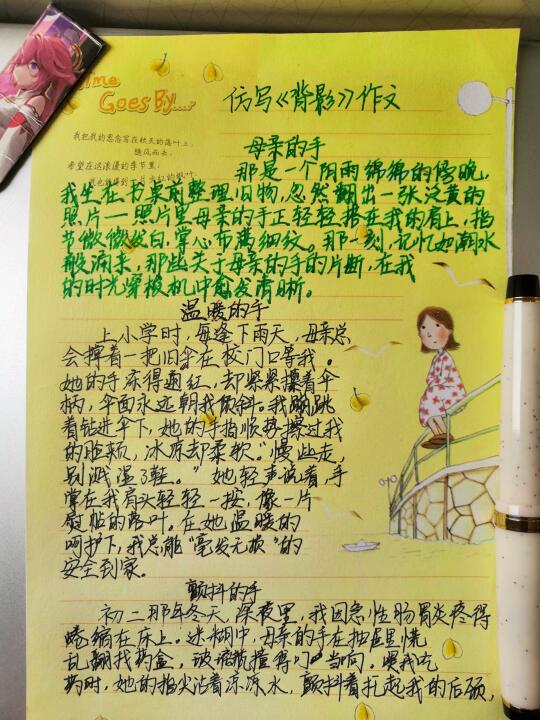 Time
Goes By....
仿写《背影》作文
我把我的思念写在秋天的落叶上,
随风而去,
希望在这浪漫的季节里,
母亲的手
那是一个阴雨绵绵的傍晚,
我坐在书桌前整理旧物,忽然翻出一张泛黄的
照片—照片里母亲的手正轻轻搭在我的肩上,指
节微微发白,掌心布满细纹。那一刻,记忆如潮水
般涌来,那些关于母亲的手的片断,在我
的时光穿梭机中愈发清晰。
温暖的手
上小学时,每逢下雨天,母亲总
会撑着一把旧伞在校门口等我。
她的手冻得通红,却紧紧攥着伞
柄,伞面永远朝我倾斜。我蹦跳
着钻进伞下,她的手指顺势擦过我
的脸颊,冰凉却柔软。"慢些走,
别溅湿了鞋。"她轻声说着,手
掌在我肩头轻轻一按,像一片
妥帖的落叶。在她温暖的
呵护下,我总能"毫发无损"的
安全到家。
颤抖的手
初二那年冬天,深夜里,我因急性肠胃炎疼得
蜷缩在床上。迷糊中,母亲的手在抽屉里慌
乱翻找药盒,玻璃瓶撞得叮当响。喂我吃
药时,她的指尖沾着凉凉水,颤抖着托起我的后颈,